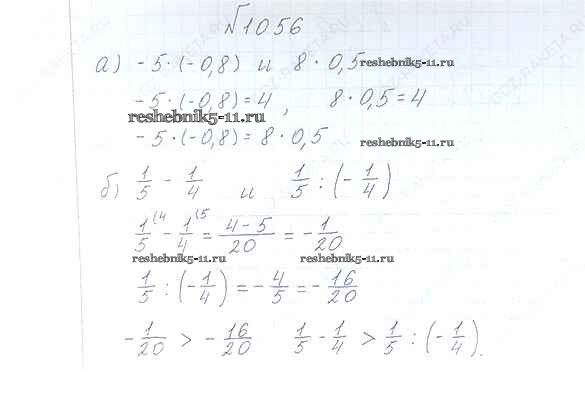 №1056
а) -5·(-0,8) и 8·0,5 reshebnik5-11.ru
-5·(-0,8)=4, 8·0,5=4
reshebnik5-11.ru
-5·(-0,8)=8·0,5 reshebnik5-11.ru
б) 1/5 - 1/4 и 1/5 : (-1/4)
1/5^(4 - 1/4^(5 = (4-5)/20 = -1/20
reshebnik5-11.ru reshebnik5-11.ru
1/5 : (-1/4) = -4/5 = -16/20
-1/20 > -16/20 1/5 - 1/4 > 1/5 : (-1/4).